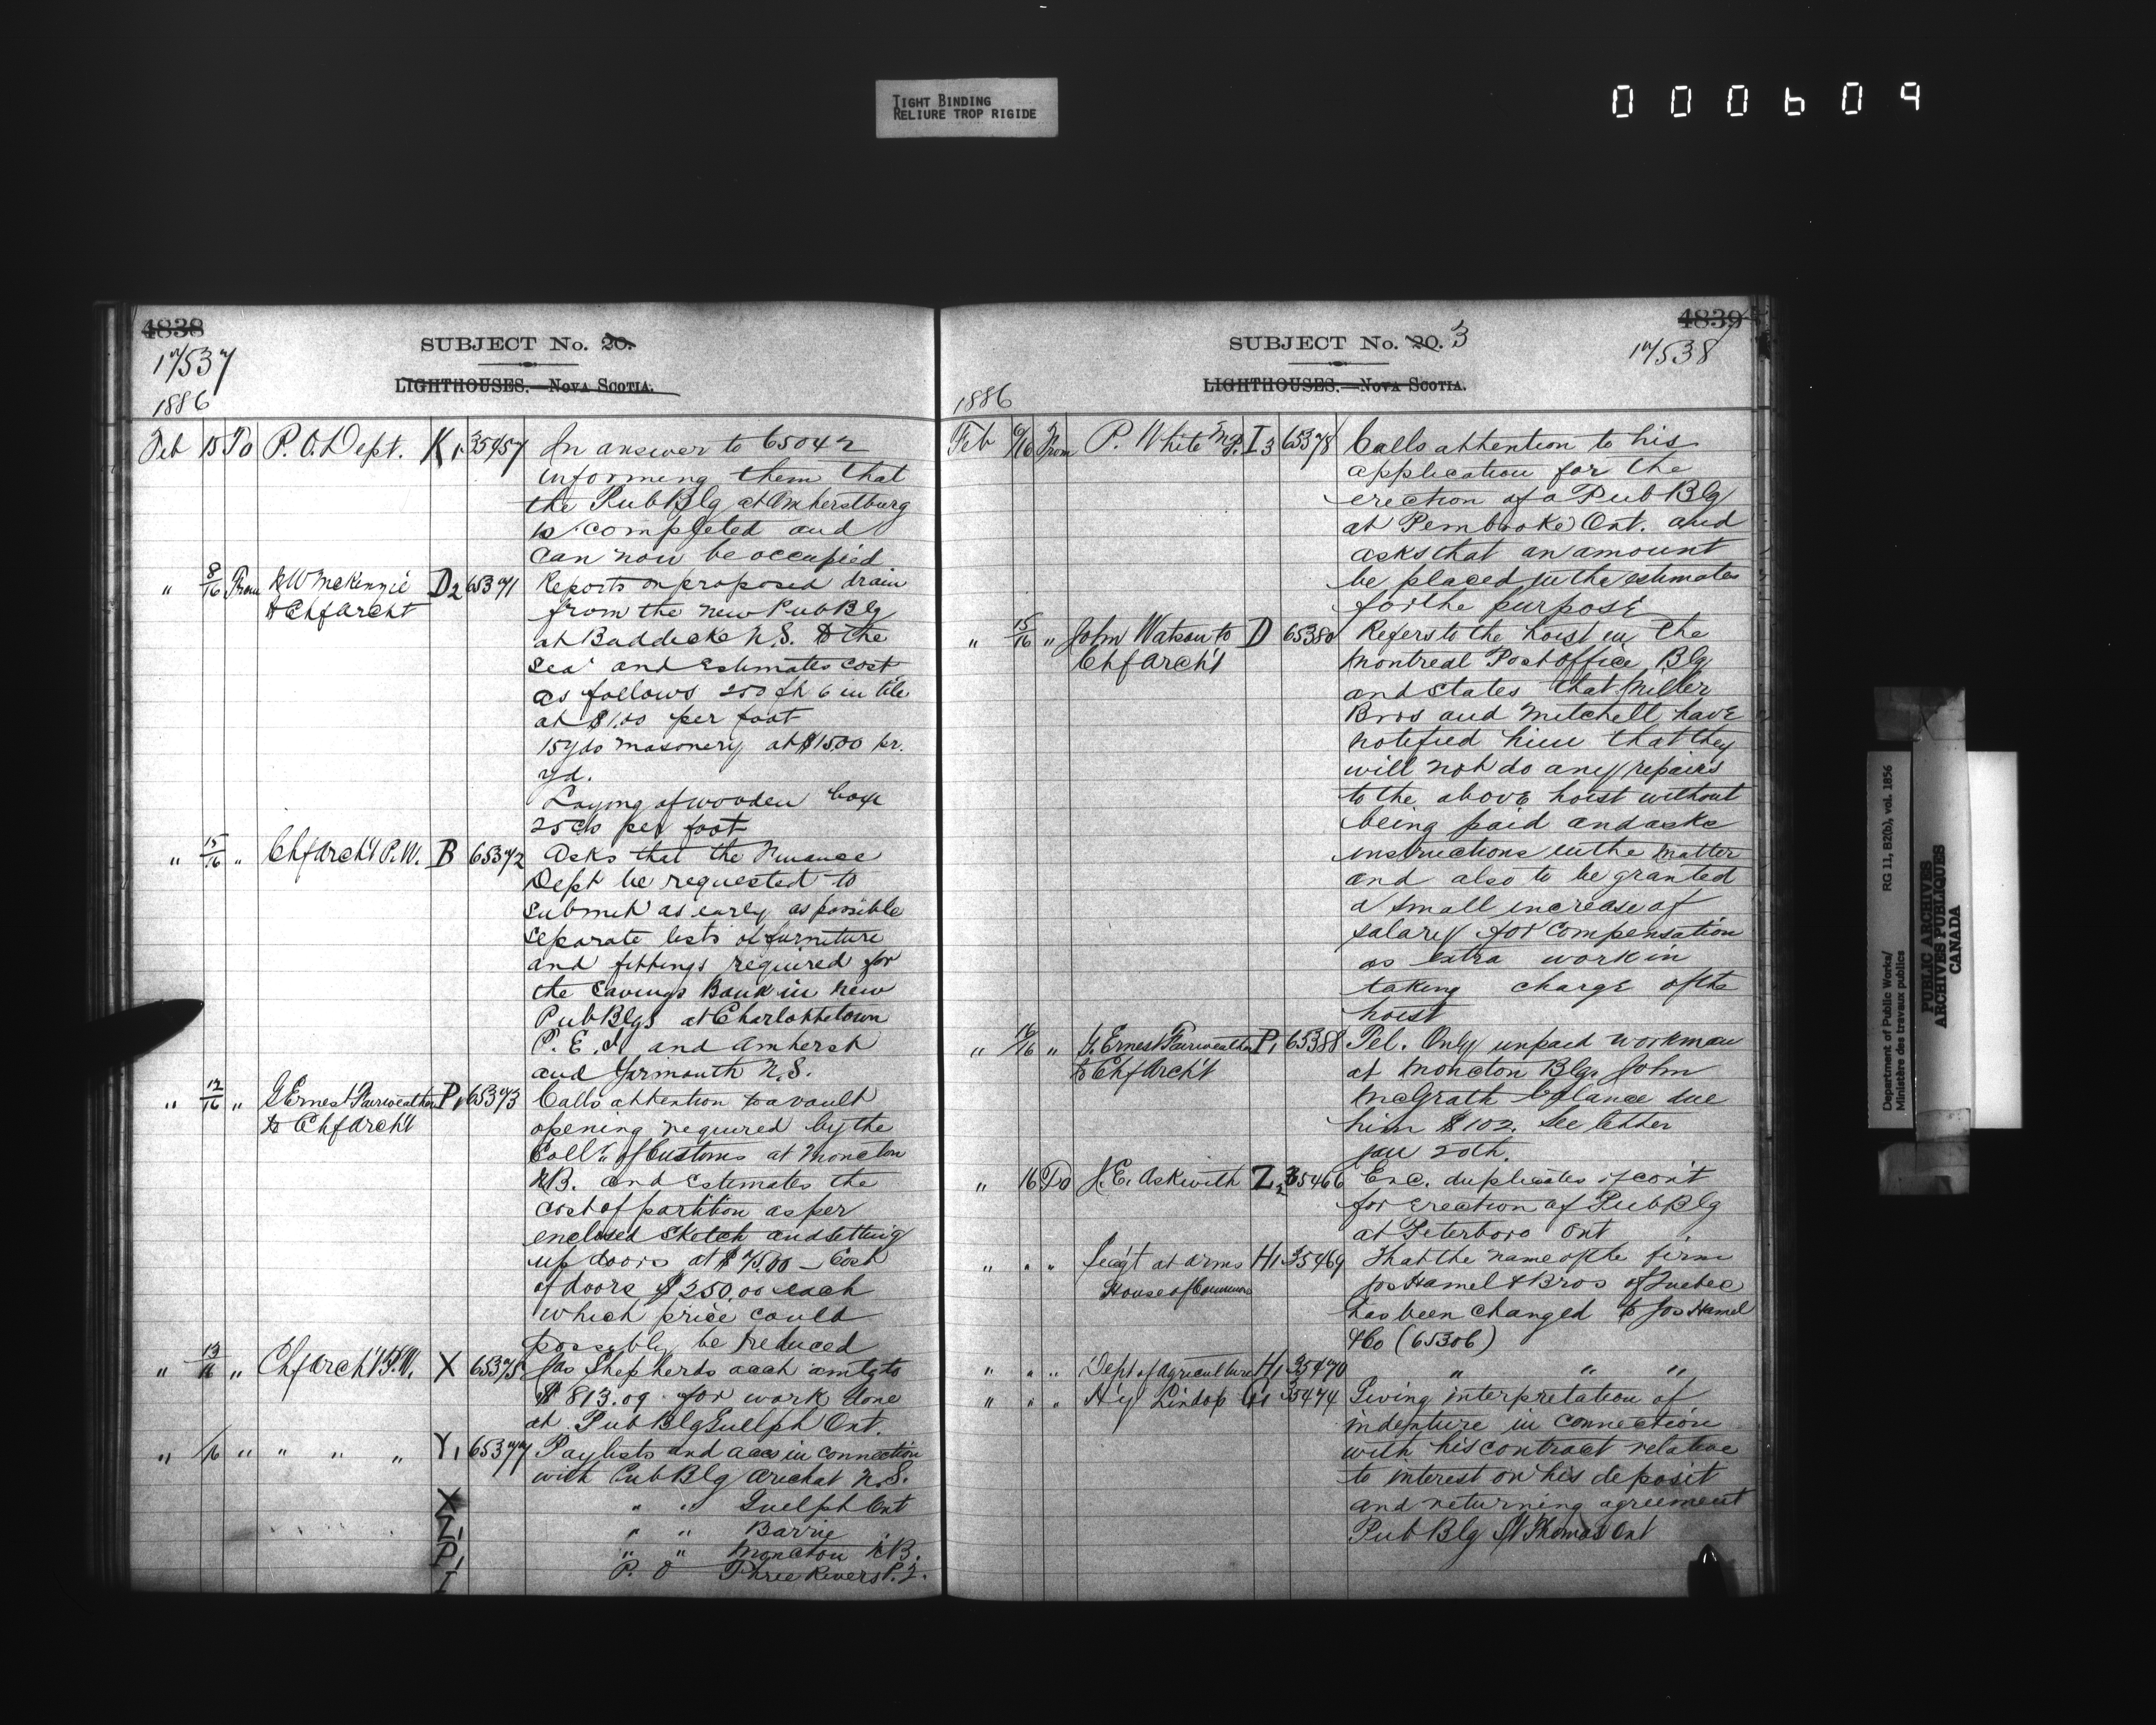 TIGHT BINDING
RELIURE TROP RIGIDE
000609
4838
SUBJECT No. 20.
17537
LIGHTHOUSES.—Nova Scotia.
1886
Feb 15 To P.O. Dept. K1 35457 In answer to 65042
informing them that
the Pub Blg at Amherstburg
is completed and
can now be occupied
" 8/16 From McKenzie D2 65371 Reports on proposed drain
to Chf Archt from the new Pub Blg
at Baddecke N.S. to the
sea and estimates cost
as follows 250 ft 6 in tile
at $1.00 per foot
15 yds masonery at $1500 pr.
yd.
Laying of wooden box
25 cts per foot
" 15/16 " Chf Arch't P.W. B 65372 Asks that the Finance
Dept be requested to
submit as early as possible
separate lists of furniture
and fittings required for
the Savings Bank in new
Pub Blgs at Charlottetown
P.E.I. and Amherst
and Yarmouth N.S.
" 12/16 " G Ernest Fairweather P1 65373 Calls attention to a vault
to Chf Arch't opening required by the
Coll. of Customs at Moncton
NB. and estimates the
cost of partition as per
enclosed sketch and setting
up doors at $75.00 – Cost
of doors $250.00 each
which price could
possibly be reduced
" 13/16 " Chf Arch't P.W. X 65375 Jas Shepherds acct amtg to
$813.09 for work done
at Pub Blg Guelph Ont.
" /16 " " " " Y1 65377 Paylists and accs in connection
with Pub Blg Arichat N.S.
X " " Guelph Ont
Z1 " " Barrie
P1 " " Moncton NB.
I P. O Three Rivers P.Q.
4839
SUBJECT No. 20. 3
17538
LIGHTHOUSES.—Nova Scotia.
1886
Feb 6/16 From P. White M.P. I3 65378 Calls attention to his
application for the
erection of a Pub Blg
at Pembroke Ont. and
asks that an amount
be placed in the estimates
for the purpose
" 15/16 " John Watson to D 65380 Refers to the hoist in the
Chf Arch't Montreal Post office Blg
and states that Miller
Bros and Mitchell have
notified him that they
will not do any repairs
to the above hoist without
being paid and asks
instructions in the matter
and also to be granted
a small increase of
salary for compensation
as extra work in
taking charge of the
hoist
" /16 " G. Ernest Fairweather P1 65388 Tel. Only unpaid workman
to Chf Arch't at Moncton Blg. John
McGrath balance due
him $102. See letter
Jan 20th.
" 16 To J.E. Askwith Z2 35466 Enc. duplicates of cont
for erection of Pub Blg
at Peterboro Ont
" " " Serg't at arms H1 35469 That the name of the firm
House of Commons Jos Hamel & Bros of Quebec
has been changed to Jos Hamel
& Co (65306)
" " " Dept of Agriculture H1 35470 " " "
" " " Hy Lindop G1 35474 Giving interpretation of
indenture in connection
with his contract relative
to interest on his deposit
and returning agreement
Pub Blg St Thomas Ont
Department of Public Works/ RG 11, B2(b), vol. 1856
Ministère des travaux publics
PUBLIC ARCHIVES
ARCHIVES PUBLIQUES
CANADA